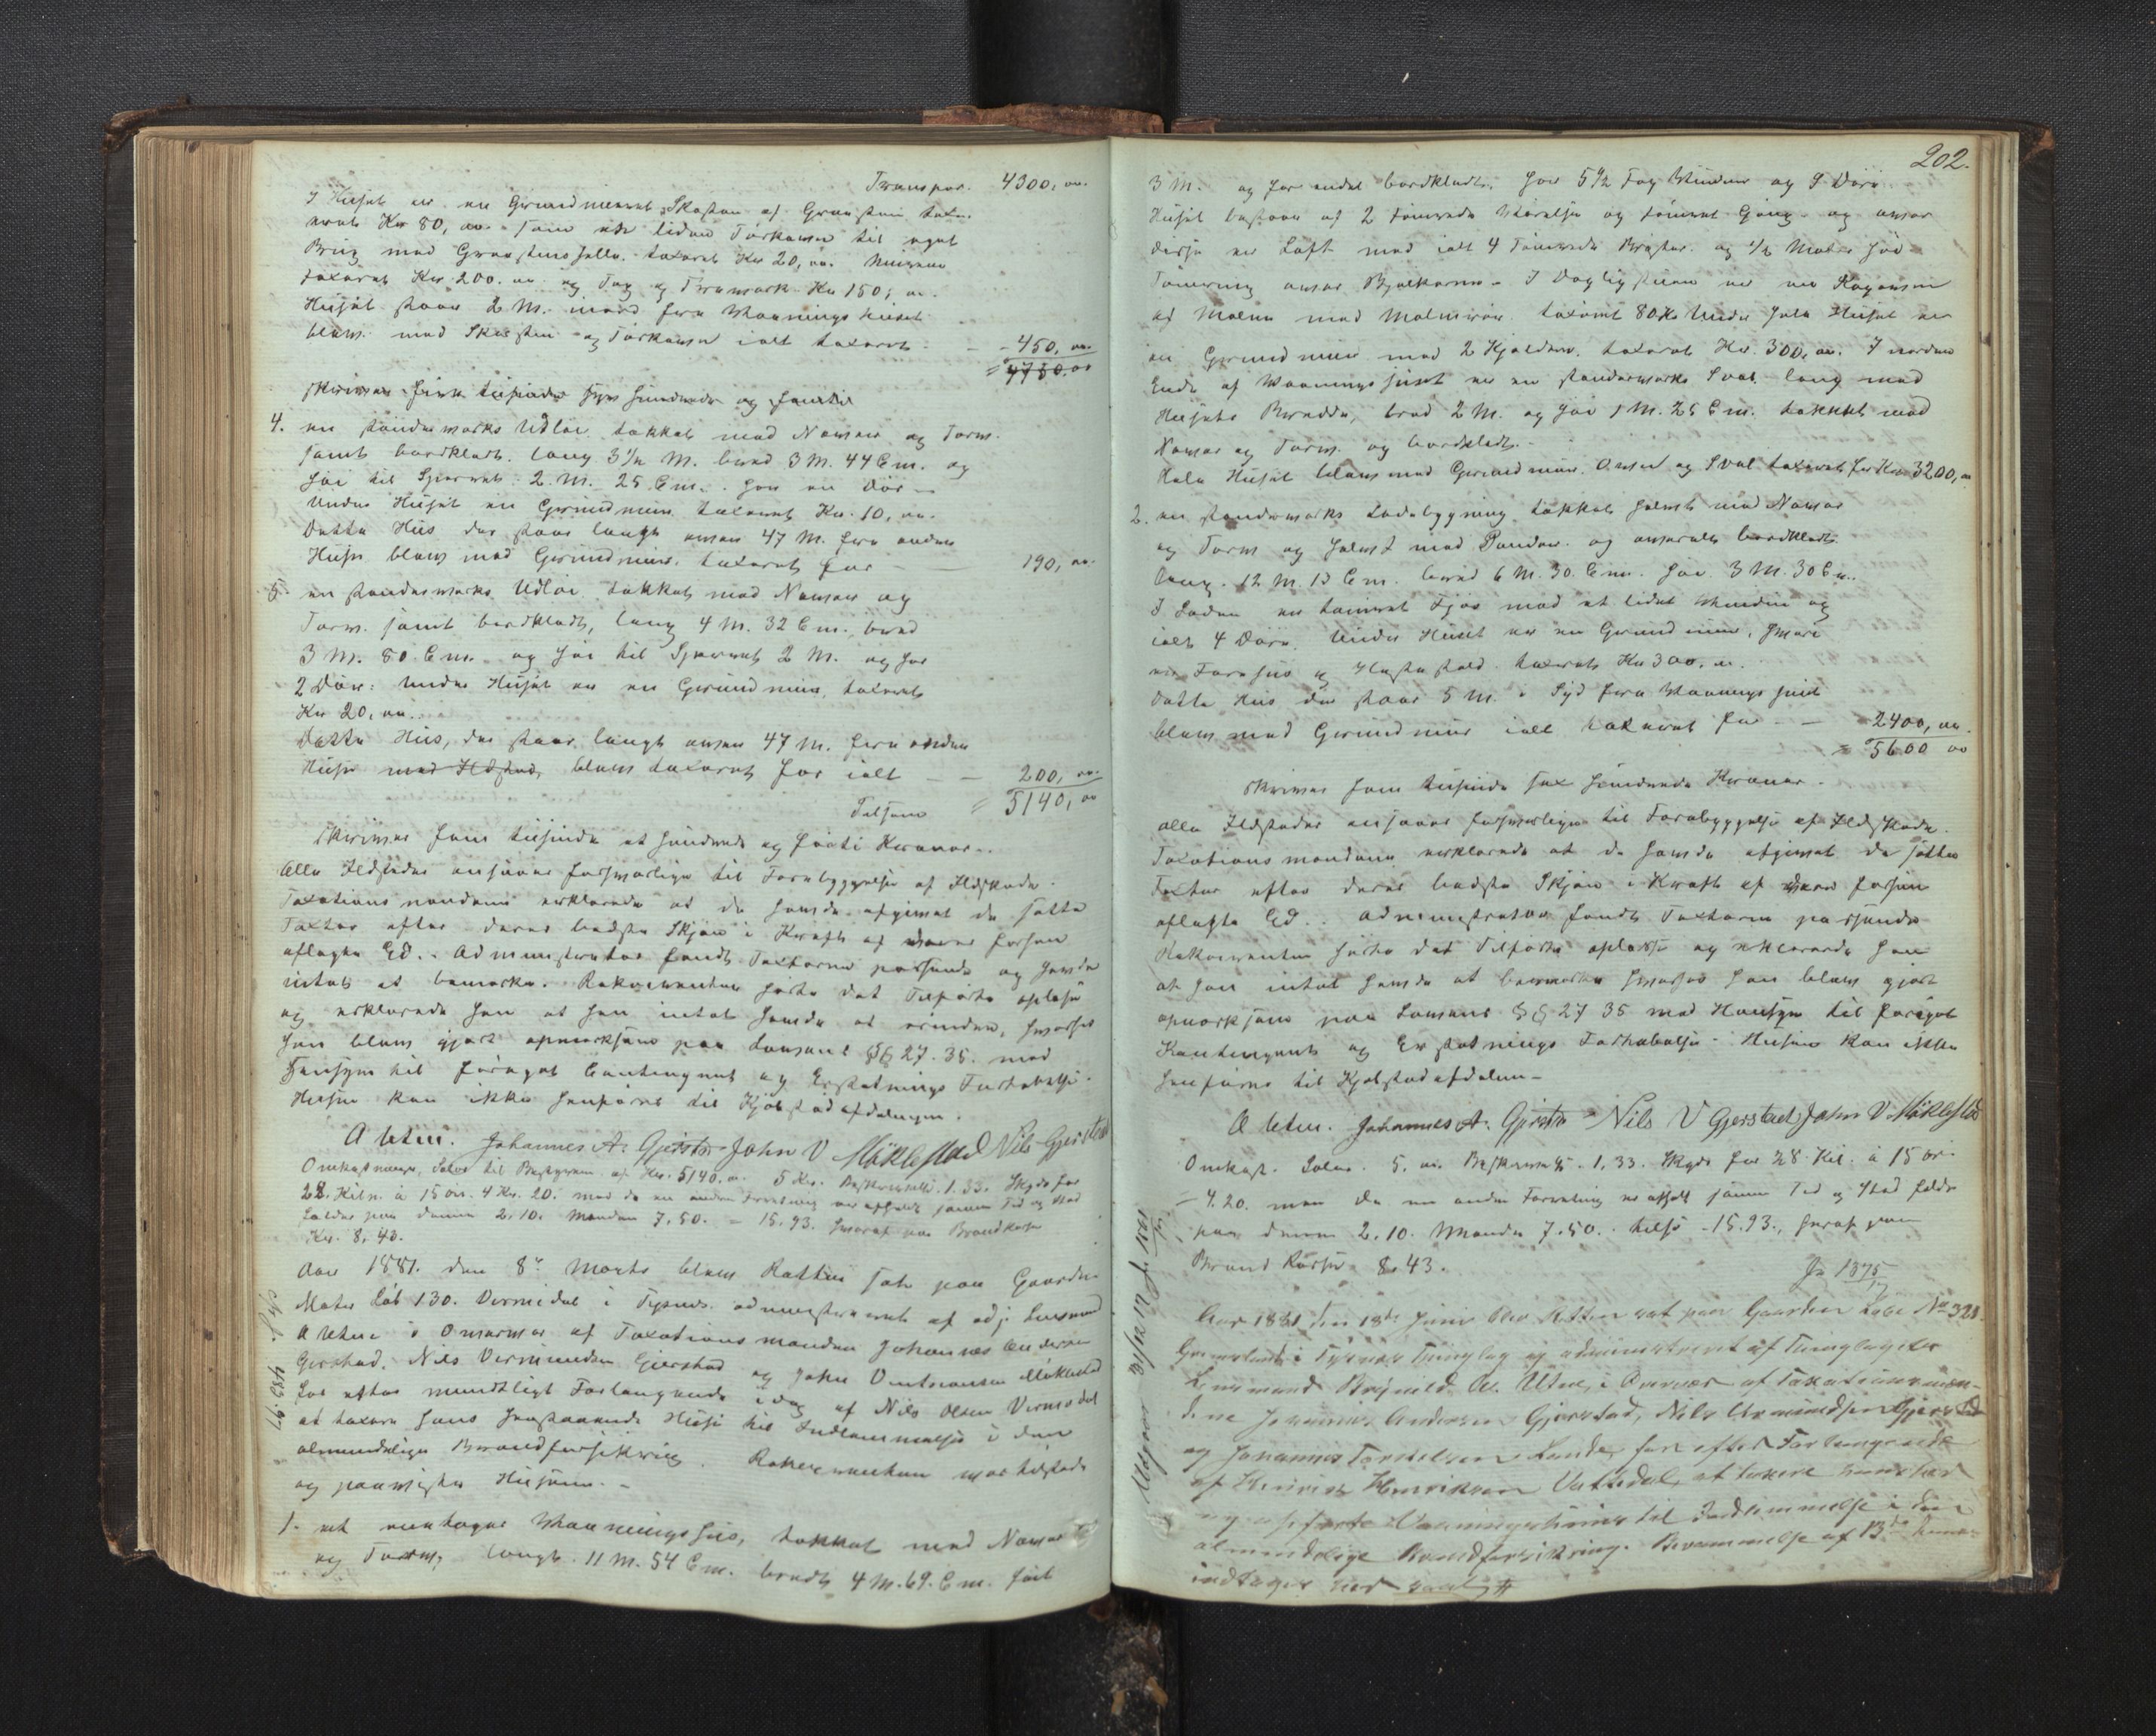 Transpor. 4300, oo.
I Huset er en Grundmuret Skorsten af Graasten taxe-
ret Kr 80, oo. samt en liden Tørkeovn til eget
Brug med Graastens Helle. taxeret Kr 20, oo. Murene
taxeret Kr 200. oo og Tag og Træværk Kr 150, oo.
Huset staar 2 M. i nord fra Vaaningshuset
blev med Skorsten og Tørkeovn ialt taxeret - - 450, oo.
= 4750. oo
skriver fire tusinde syv hundrede og femti
4. en stænderværks Udløe tækket med Næver og Torv.
samt bordklædt. lang 3 1/2 M. bred 3 M. 44 Cm. og
høi til Sperret 2. M. 25 Cm. har en Dør -
Under Huset en Grundmur taxeret Kr. 10, oo.
Dette Hus der staar længre end 47 M. fra andre
Huse blev med Grundmur. taxeret for - - 190, oo.
5. en stænderværks Udløe tækket med Næver og
Torv. samt bordklædt, lang 4 M. 32 Cm., bred
3 M. 80 Cm. og høi til Sperret 2 M. og har
2 Døre: Under Huset er en Grundmur, taxeret
Kr 20, oo.
Dette Hus, der staar længre end 47 M. fra andre
Huse med Ildsted, blev taxeret for ialt - - 200, oo.
Tilsam = 5140, oo
skriver fem tusinde et hundrede og førti Kroner.
Alle Ildsteder ansaaes forsvarlige til Forebyggelse af Ildskade.
Taxationsmændene erklærede at de havde afgivet de satte
Taxter efter deres bedste Skjøn i Kraft af deres forhen
aflagte Ed. Administrator fandt Taxterne passende og havde
intet at bemærke. Rekvirenten hørte det Tilførte oplæst
og erklærede han at han intet havde at erindre, hvorhos
han blev gjort opmærksom paa Lovens §§ 27. 35. med
Hensyn til forøget Contingent og Erstatnings Fortabelse.
Husene kan ikke henføres til Kjøbstadafdelingen.
A Utne. Johannes A. Gjersta John V Møklestad Nils Gjerstad
Omkostninger, Salær til Bestyreren af Kr. 5140. oo 5 Kr. Beskrivelse. 1. 33. Skyds for
28. Kilm. à 15 øre. 4 Kr. 20. med da en anden Forretning er afholdt samme Tid og Sted
falder paa denne 2. 10. Mændene 7. 50. = 15. 93. hvoraf paa Brandkassen
Kr. 8, 43.
Aar 1881. den 8de Marts blev Retten sat paa Gaarden
Matr Løb 130. Vermedal i Tysnes. administreret af adj. Lensmand
A Utne i Overvær af Taxationsmændene Johannes Andersen
Gjerstad. Nils Vermundsen Gjerstad og John Vintensen Møklestad
for efter mundtligt Forlangende idag af Nils Olsen Vermedal
at taxere hans henstaaende Huse til Indlemmelse i den
almindelige Brandforsikring. Rekvirenten var tilstede
og paaviste Husene. -
1. et een etages Vaaningshus, tækket med Næver
og Torv, langt 11 M. 54 Cm. bredt 4 M. 69. Cm. høit
202.
3 M. og for endel bordklædt, har 5 1/2 Fag Vinduer og 9 Døre
Huset bestaar af 2 tømrede Værelser og tømret Gang og over
disse er Loft med ialt 4 Tømrede Brøster. og 1/2 Meter høi
Tømring over Bjelkerne - I Dagligstuen er en Kogeovn
af Malm med Malmrør. taxeret 80 Kr. Under hele Huset er
en Grundmur med 2 Kjeldere. taxeret Kr. 300, oo. I nordre
Ende af Vaaningshuset er en stænderværks Sval. lang med
Husets Bredde, bred 2 M. og høi 1 M. 25 Cm. tækket med
Næver og Torv. og bordklædt.
Hele Huset blev med Grundmur. Ovn og Sval taxeret for Kr 3200, oo
2. en stænderværks Ladebygning tækket halvt med Næver
og Torv og halvt med Pander. og overalt bordklædt
lang. 12 M. 13 Cm. bred 6 M. 30 Cm. høi 3 M. 30 Cm.
I Laden er tømret Fjøs med et lidet Vindue og
ialt 4 Døre. Under Huset er en Grundmur, hvori
er Forehus og Hestestald. taxeret Kr 300. oo.
Dette Hus der staar 5 M. i Syd fra Vaaningshuset
blev med Grundmur ialt taxeret for - - 2400, oo.
= 5600 oo
skriver fem tusinde sex hundrede Kroner.
Alle Ildsteder ansaaes forsvarlige til Forebyggelse af Ildskade.
Taxationsmændene erklærede at de havde afgivet de satte
Taxter efter deres bedste Skjøn i Kraft af deres forhen
aflagte Ed. Administrator fandt Taxterne passende
Rekvirenten hørte det Tilførte oplæst og erklærede han
at han intet havde at bemærke hvorhos han blev gjort
opmærksom paa Lovens §§ 27 35 med Hensyn til forøget
Kontingent og Erstatnings Fortabelse. Husene kan ikke
henføres til Kjøbstadafdelen -
A Utne. Johannes A. Gjersta Nils V Gjerstad John V Møklestad
Omkost. Salær. 5. oo. Beskrivelse 1. 33. Skyds for 28 Kil. à 15 øre
= 4. 20. men da en anden Forretning er afholt samme Tid og Sted falder
paa denne 2. 10. Mændene 7. 50. tilsa - 15. 93., hvoraf paa
Brand Kassen 8. 43.
Jr 1375
Aar 1881 den 18de Juni blev Retten sat paa Gaarden Løbe No 321
i Tysnes Thinglag og administreret af Thinglagets
Lensmand Brynild A. Utne, i Overvær af Taxationsmæn-
dene Johannes Andersen Gjerstad, Nils Vermundsen Gjerstad
og Johannes Torkelsen Lunde, for efter Forlangende
af Henrik Henriksen Vattedal, at taxere hans her
opførte Vaaningshuus til Indlemmelse i den
almindelige Brandforsikring. Berammelse af 13de ds
indtages her saal.